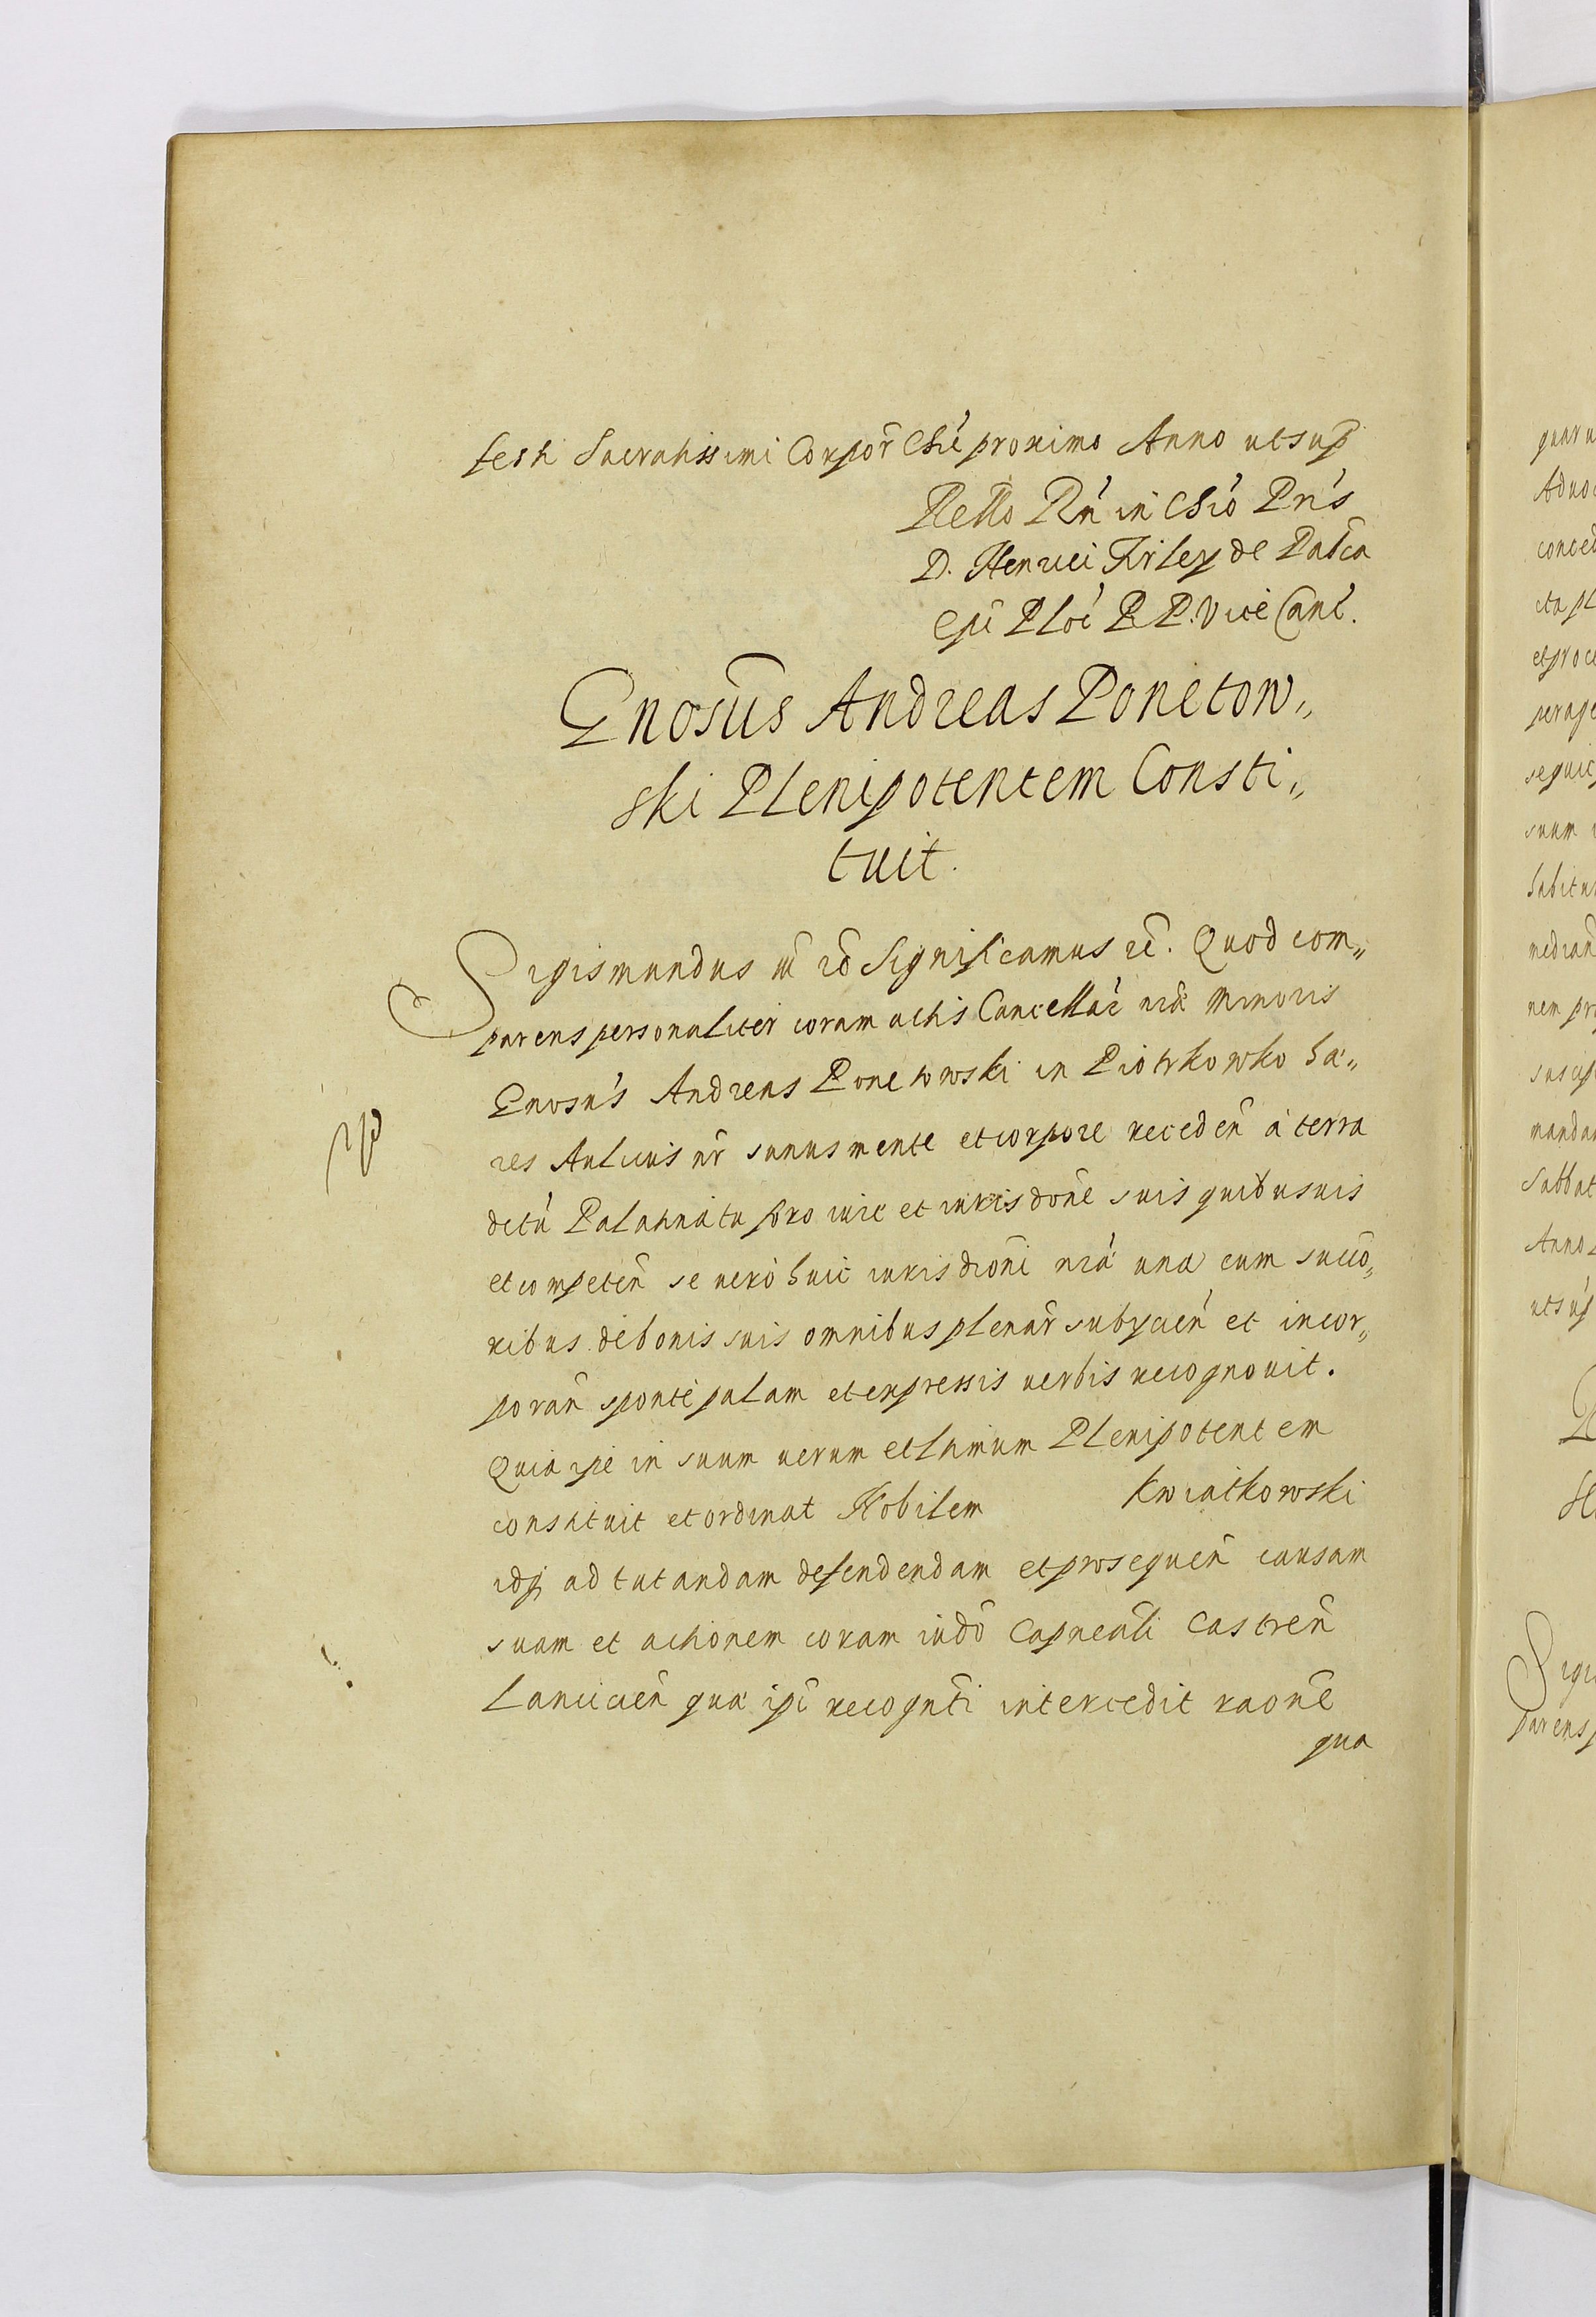 festi Sacratissimi Corpor̄ Chī proximo Anno utsup̄
Rello Rń in Chŕo Prís
D. Henrici Firley de Dabr̄ca
Epī Ploć R. P. Vice Canć.
Gnosūs Andreas Ponetow„
ski Plenipotentem Consti„
tuit.
Sigismundus iīī rō Significamus rc̄. Quod com„
parens personaliter coram actis Cancellać nrā Minoris
Gnosús Andreas Ponetowski in Piotrkowko hæ„
res Aulicus nr̄ sanus mente et corpore receden̄ à terra
dictū Palatinatu foro iure et iurisdōne suis quibusuis
et competen̄ se uerò huic iurisdiōni nrā una cum succō„
ribus de bonis suis omnibus plenar̄ subÿcien̄ et incor„
poran̄ sponte palam et expressis uerbis recognouit.
Quia ipē in suum uerum et ltimum Plenipotentem
constituit et ordinat Nobilem Kwiatkowski
idq ad tutandam defendendam et prosequen̄ causam
suam et actionem coram iudō Capneāli Castren̄
Lancicien̄ quæ ipī recognti intercedit raōne
qua
quaru
Aduo
conced
eta pl
et proce
perage
sequi
suum
habitu
median̄
nem pr
suscip
mandan
Sabbat
Anno
utsup
Sigi
parens p